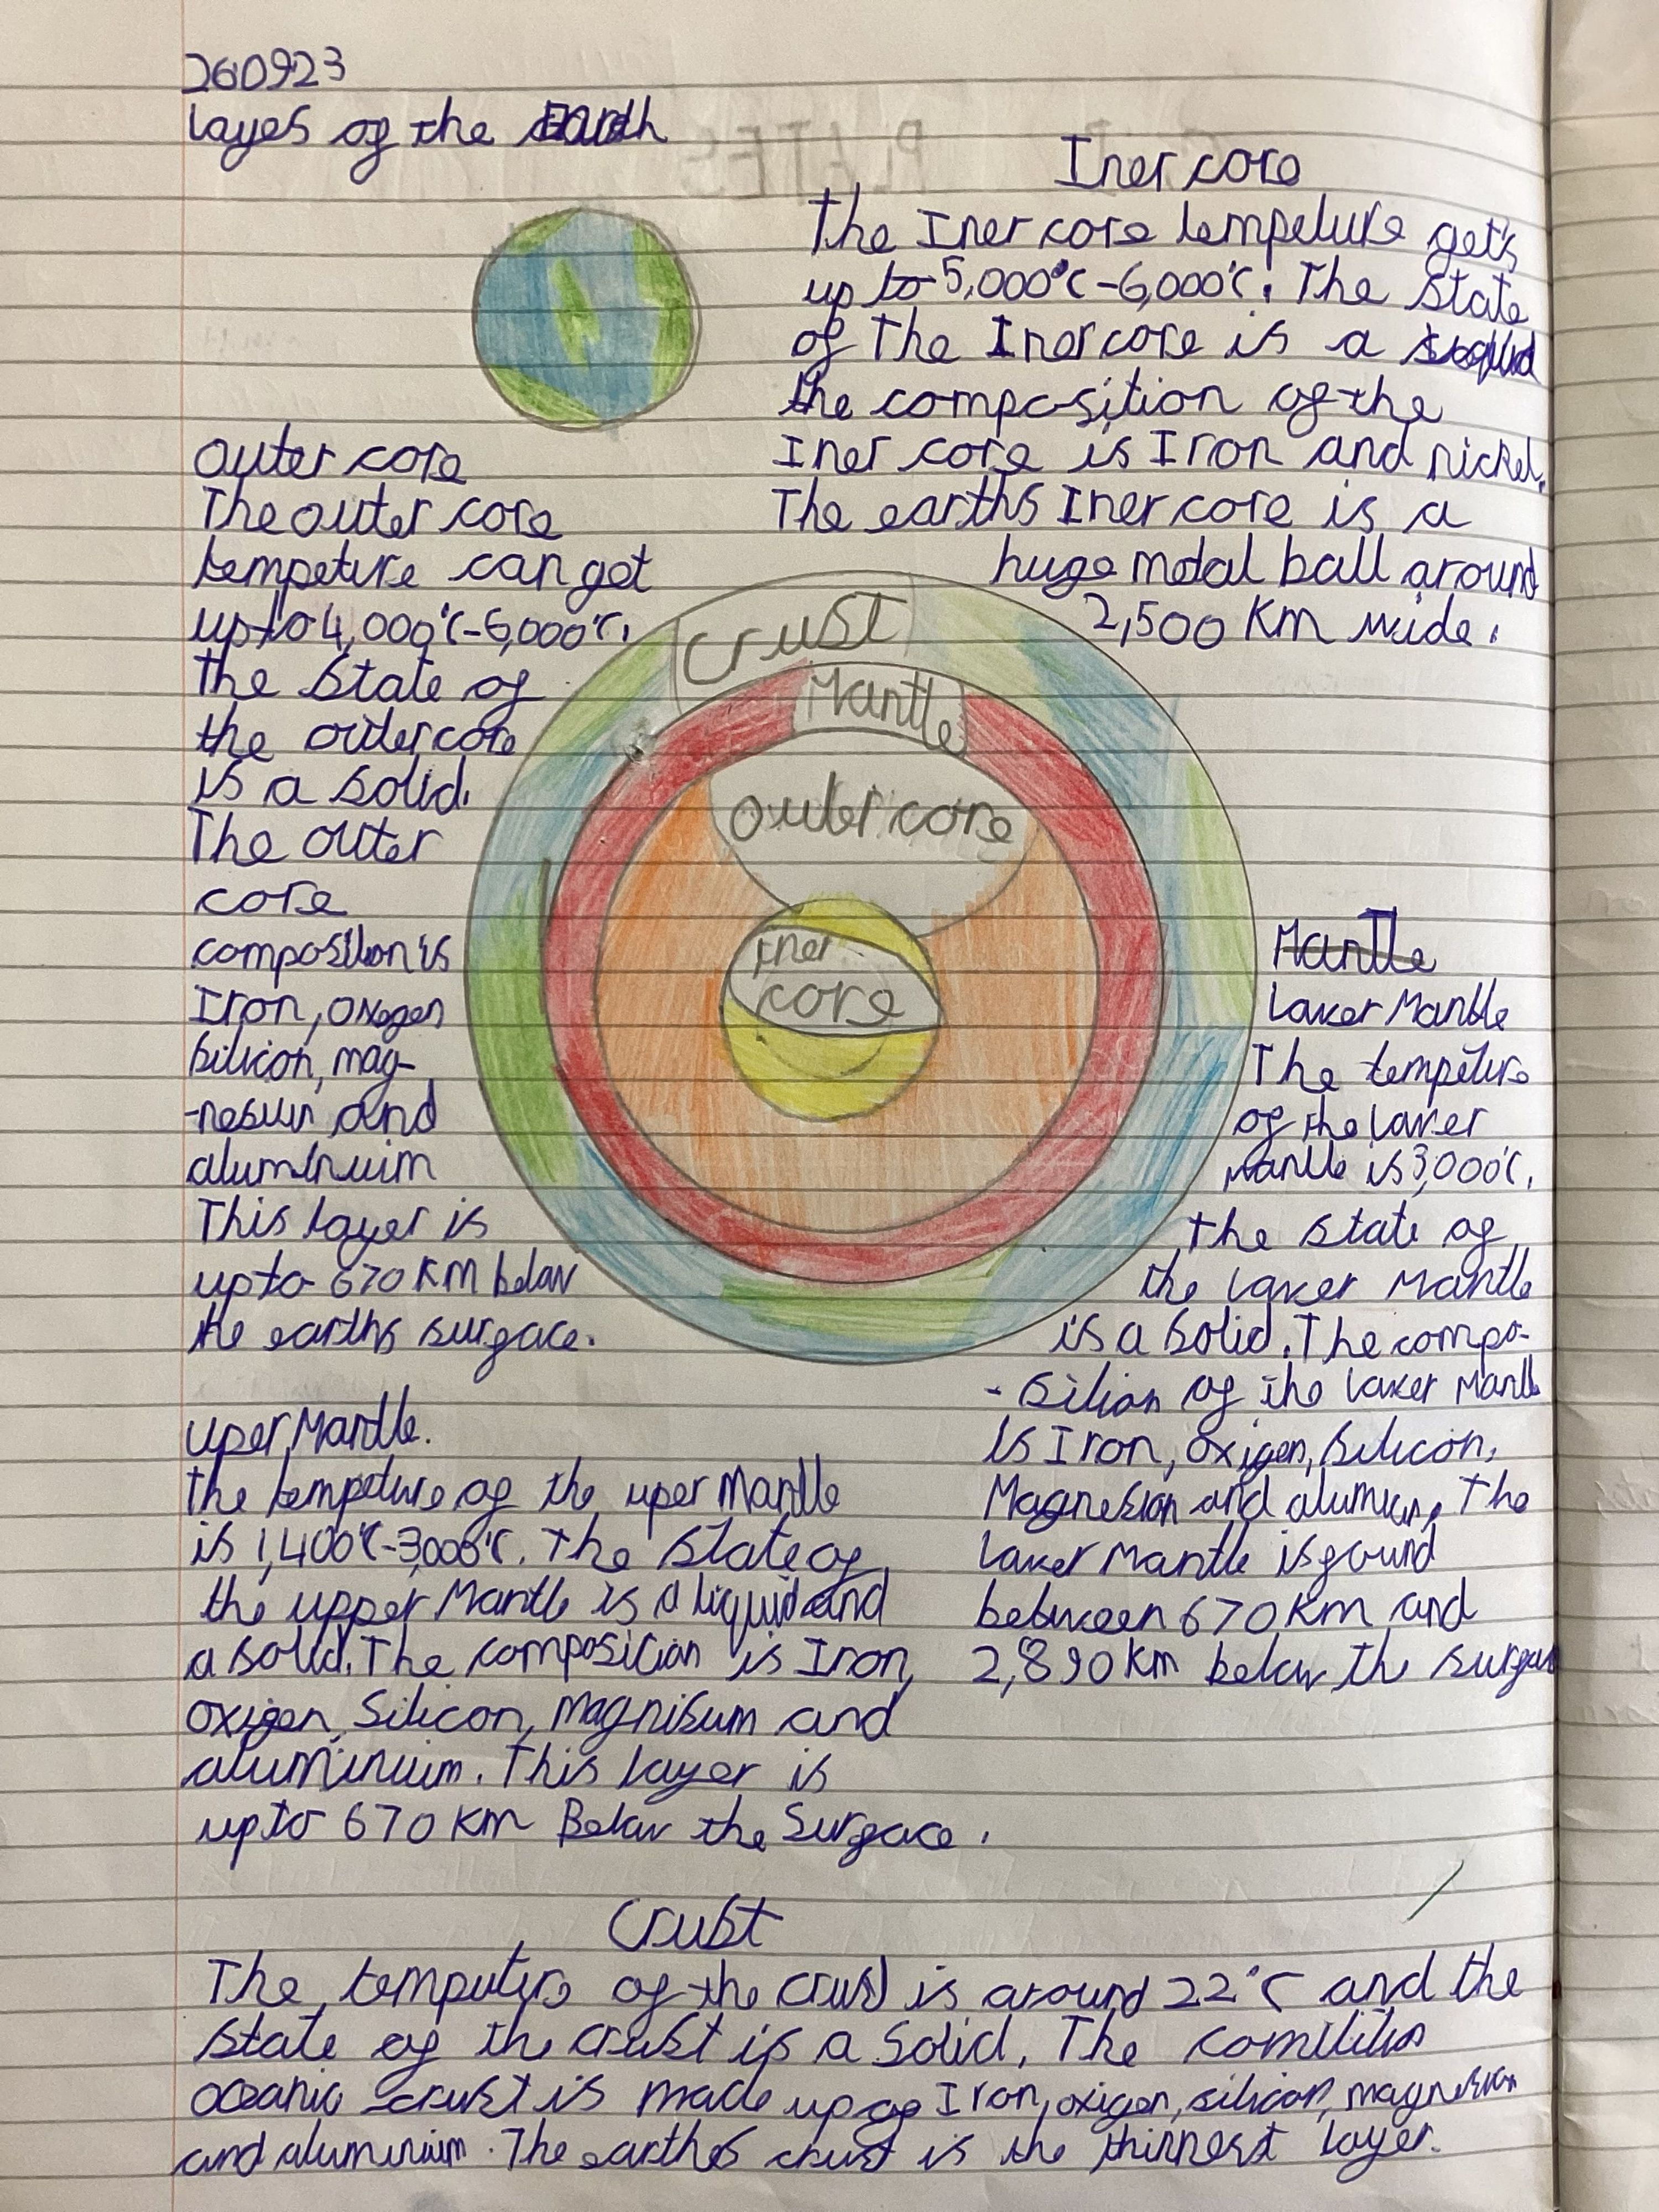 260923
layes of the Earth
Iner core
The Iner core tempeture get's
up to 5,000°C-6,000°C. The State
of The Iner core is a
the composition of the
Iner core is Iron and nickel.
The earths Iner core is a
huge metal ball around
2,500 Km wide.
outer core
The outer core
tempeture can get
up to 4,000°C-6,000°C.
the State of
the outer core
is a solid.
The outer
core
composition is
Iron, oxegen
silicon, mag-
-nesuin and
aluminuim
This layer is
up to 670 KM belaw
the earths surface.
crust
Mantle
outer core
iner
core
Mantle
lawer Mantle
The tempeture
of the lawer
mantle is 3,000°C.
the state of
the lawer Mantle
is a solid. The compo-
-sition of the lawer Mantle
is Iron, oxigen, silicon,
Magnesion and The
lawer Mantle is found
between 670 Km and
2,890 km below the
uper Mantle.
the tempeture of the uper Mantle
is 1,400°C-3,000°C. The State of
the upper Mantle is a liquid and
a solid. The composition is Iron,
oxigen, Silicon, Magnisum and
aluminuim. This layer is
up to 670 KM Belaw the Surface.
Crust
The temputure of the crust is around 22°C and the
state of the crust is a Solid. The
oceanic crust is made up of Iron, oxigen, silicon, magnesion
and aluminium. The earthes crust is the thinnest layer.